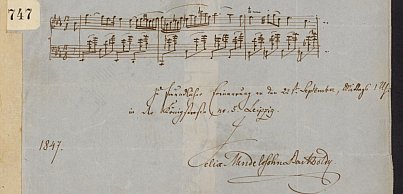 747
Zu freundlicher Erinnerung an den 22st. September, Mittags 1 Uhr
in der Königstraße no. 5 Leipzig.
1847.
Felix Mendelssohn Bartholdy